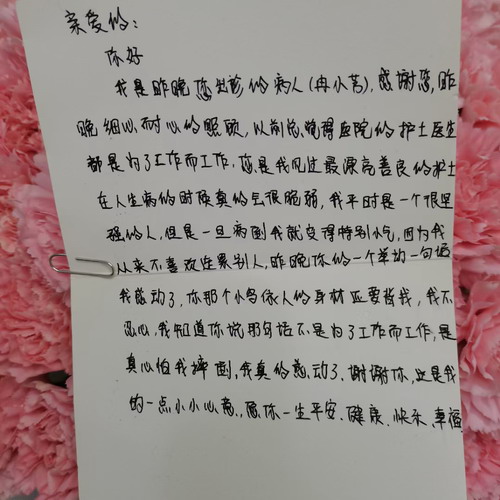 亲爱的：
你好
我是昨晚您出诊的病人(冉小芳)，感谢您，昨
晚细心耐心的照顾，以前总觉得医院的护士医生
都是为了工作而工作，您是我见过最漂亮善良的护士
在人生病的时候真的会很脆弱，我平时是一个很坚
强的人，但是一旦病倒我就变得特别小气，因为我
从来不喜欢连累别人，昨晚你的一个举动一句话
我感动了，你那个小鸟依人的身材还要背我，我不
忍心，我知道你说那句话不是为了工作而工作，是
真心怕我摔倒，我真的感动了，谢谢你，这是我
的一点小小心意，愿你一生平安、健康、快乐、幸福